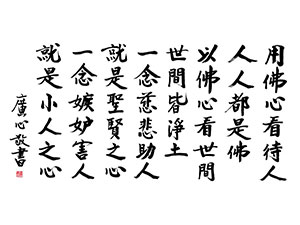 用佛心看待人
人人都是佛
以佛心看世間
世間皆淨土
一念慈悲助人
就是聖賢之心
一念嫉妒害人
就是小人之心
廣心敬書